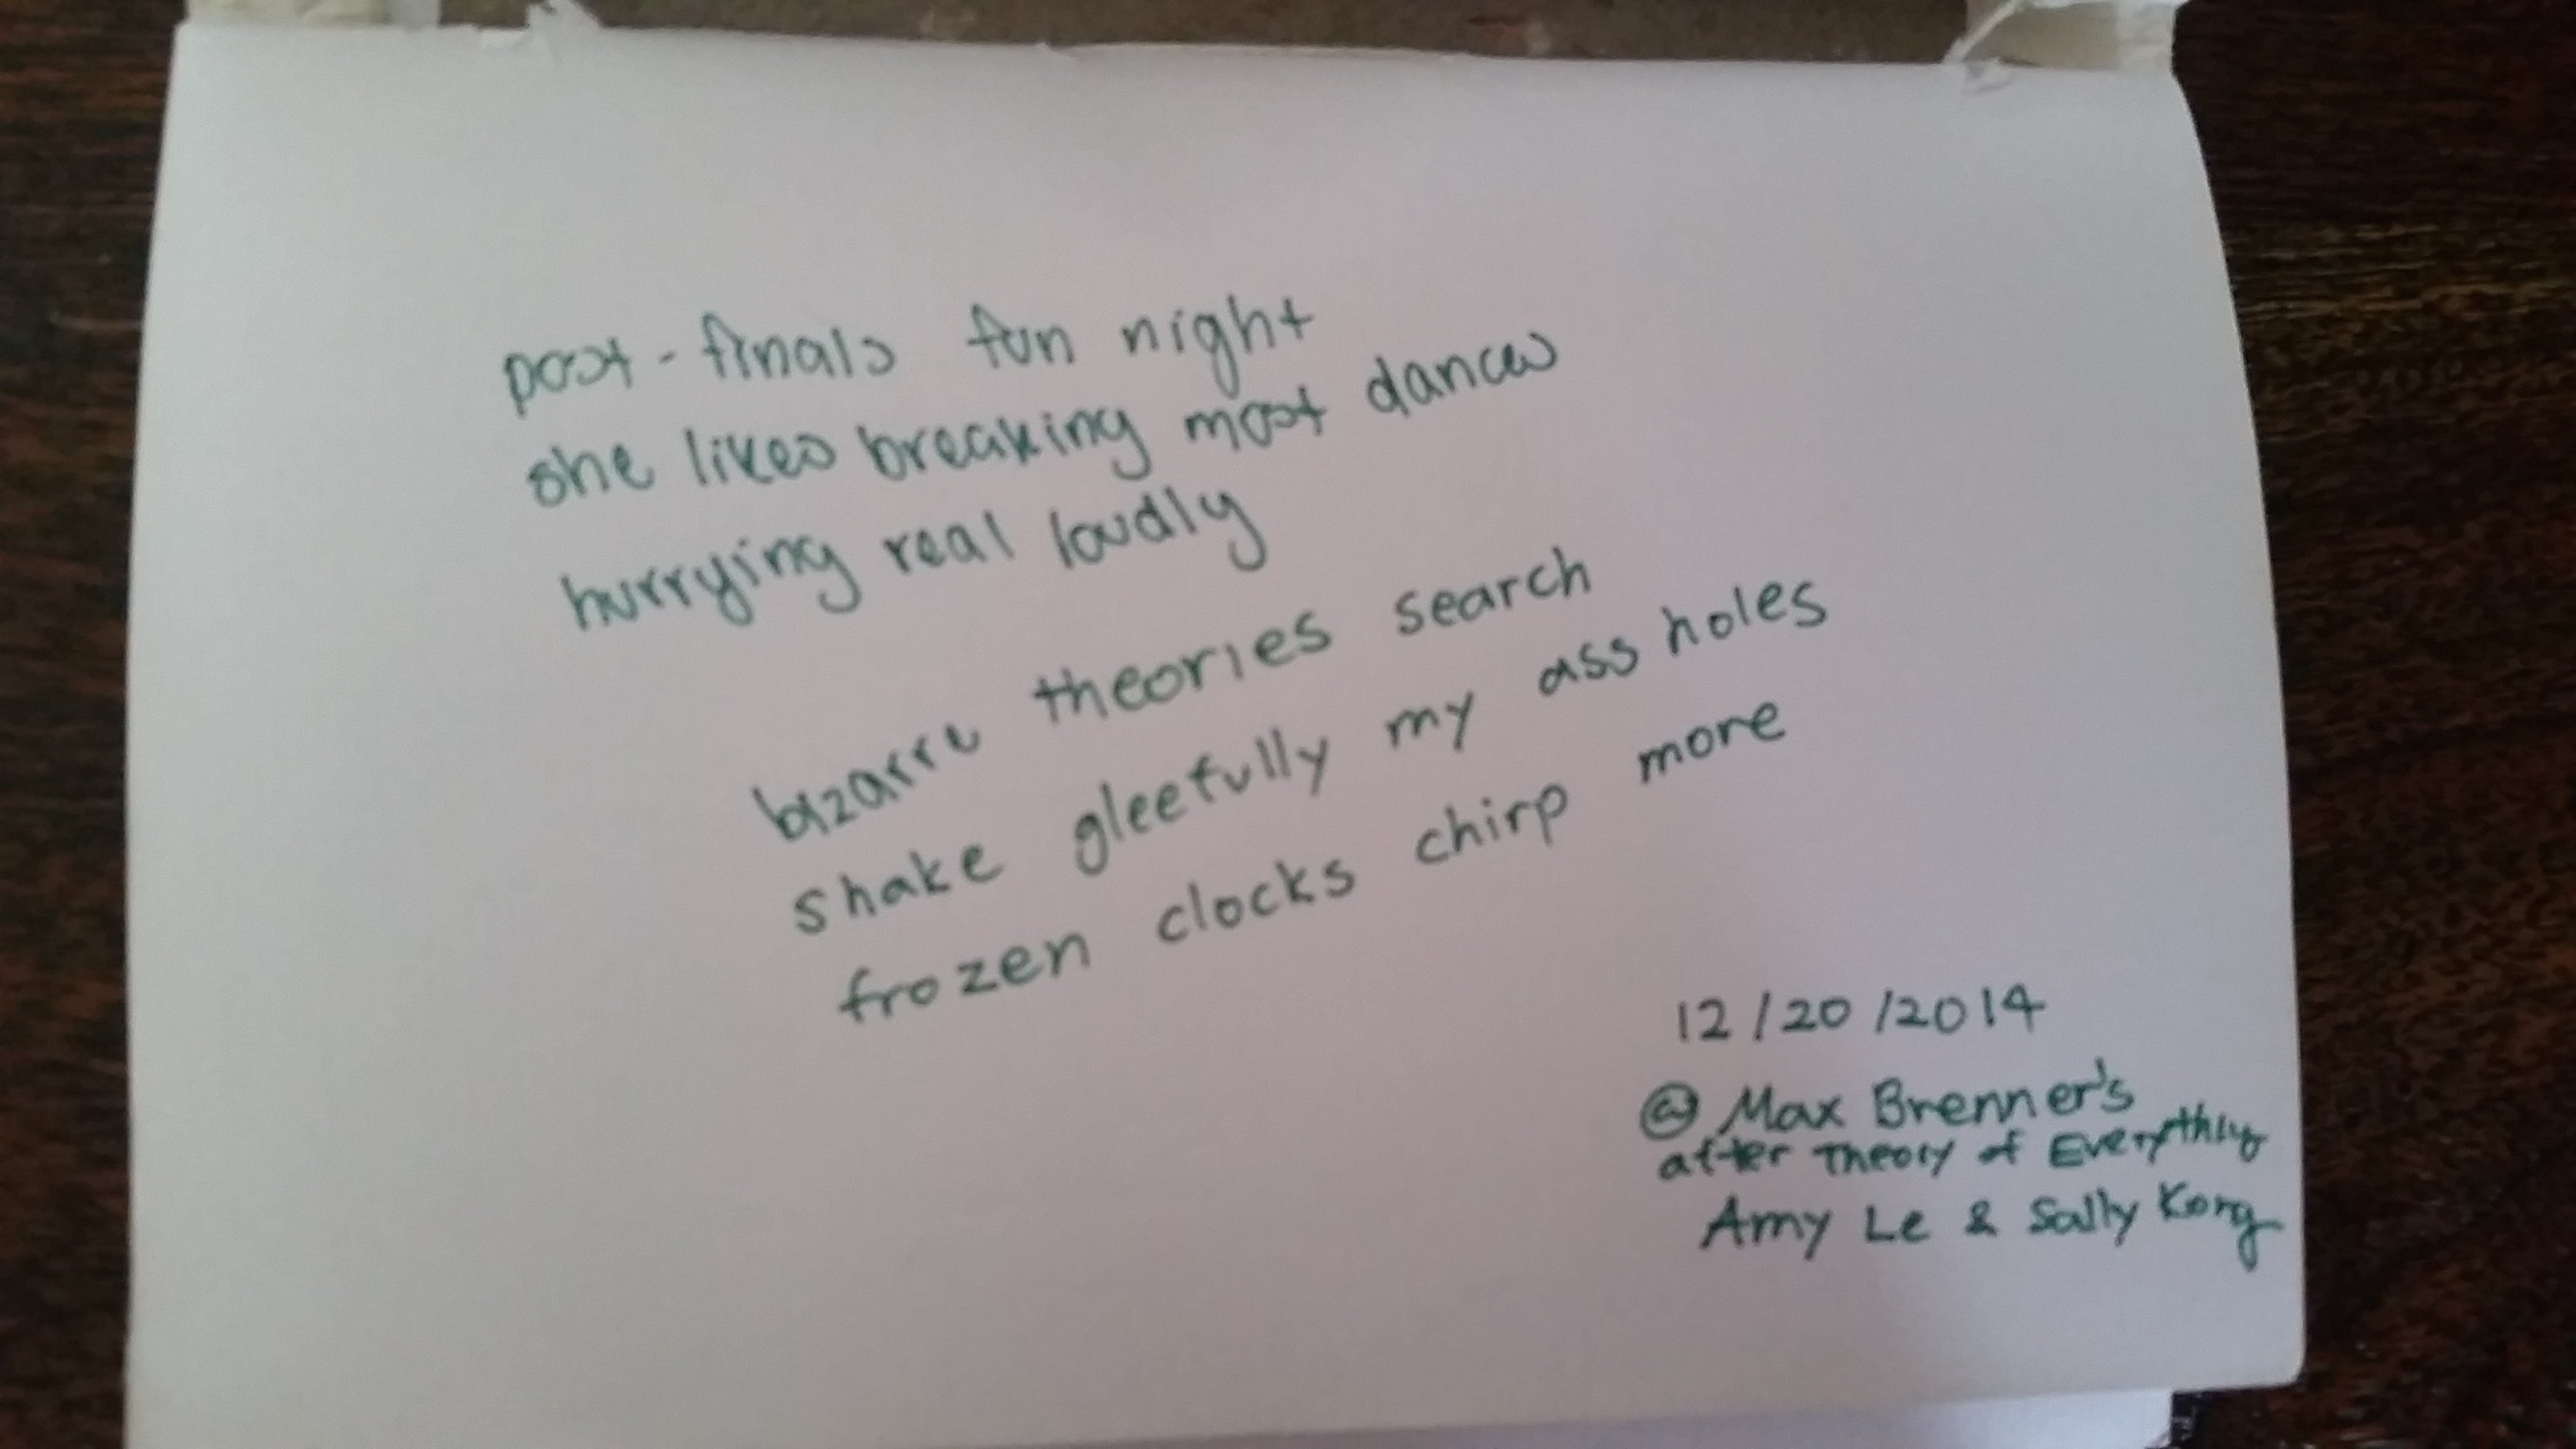 post-finals fun night
she likes breaking most dances
hurrying real loudly
bizarre theories search
shake gleefully my ass holes
frozen clocks chirp more
12/20/2014
@ Max Brenner's
after Theory of Everything
Amy Le & Sally Kong